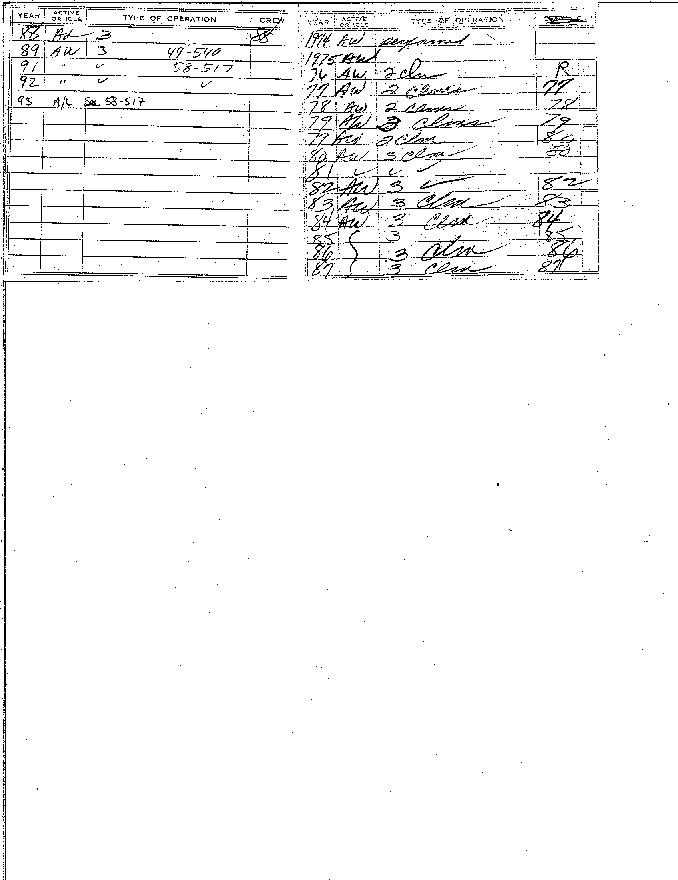 YEAR ACTIVE OR IDLE TYPE OF OPERATION CREW
88 AW 3 88
89 AW 3 49-540
91 " ✓ 58-517
92 " ✓ ✓
93 A/L See 58-517
YEAR ACTIVE OR IDLE TYPE OF OPERATION
1974 AW performed
1975 AW
76 AW 2 clm R
77 AW 2 claims 77
78 AW 2 claims 78
79 AW 3 clms 79
79 AW 2 clm 80
80 AW 3 clm 80
81 ✓ ✓ ✓
82 AW 3 ✓ 82
83 AW 3 clm 83
84 AW 3 clm 84
85 3 85
86 3 clm 86
87 3 clm 87